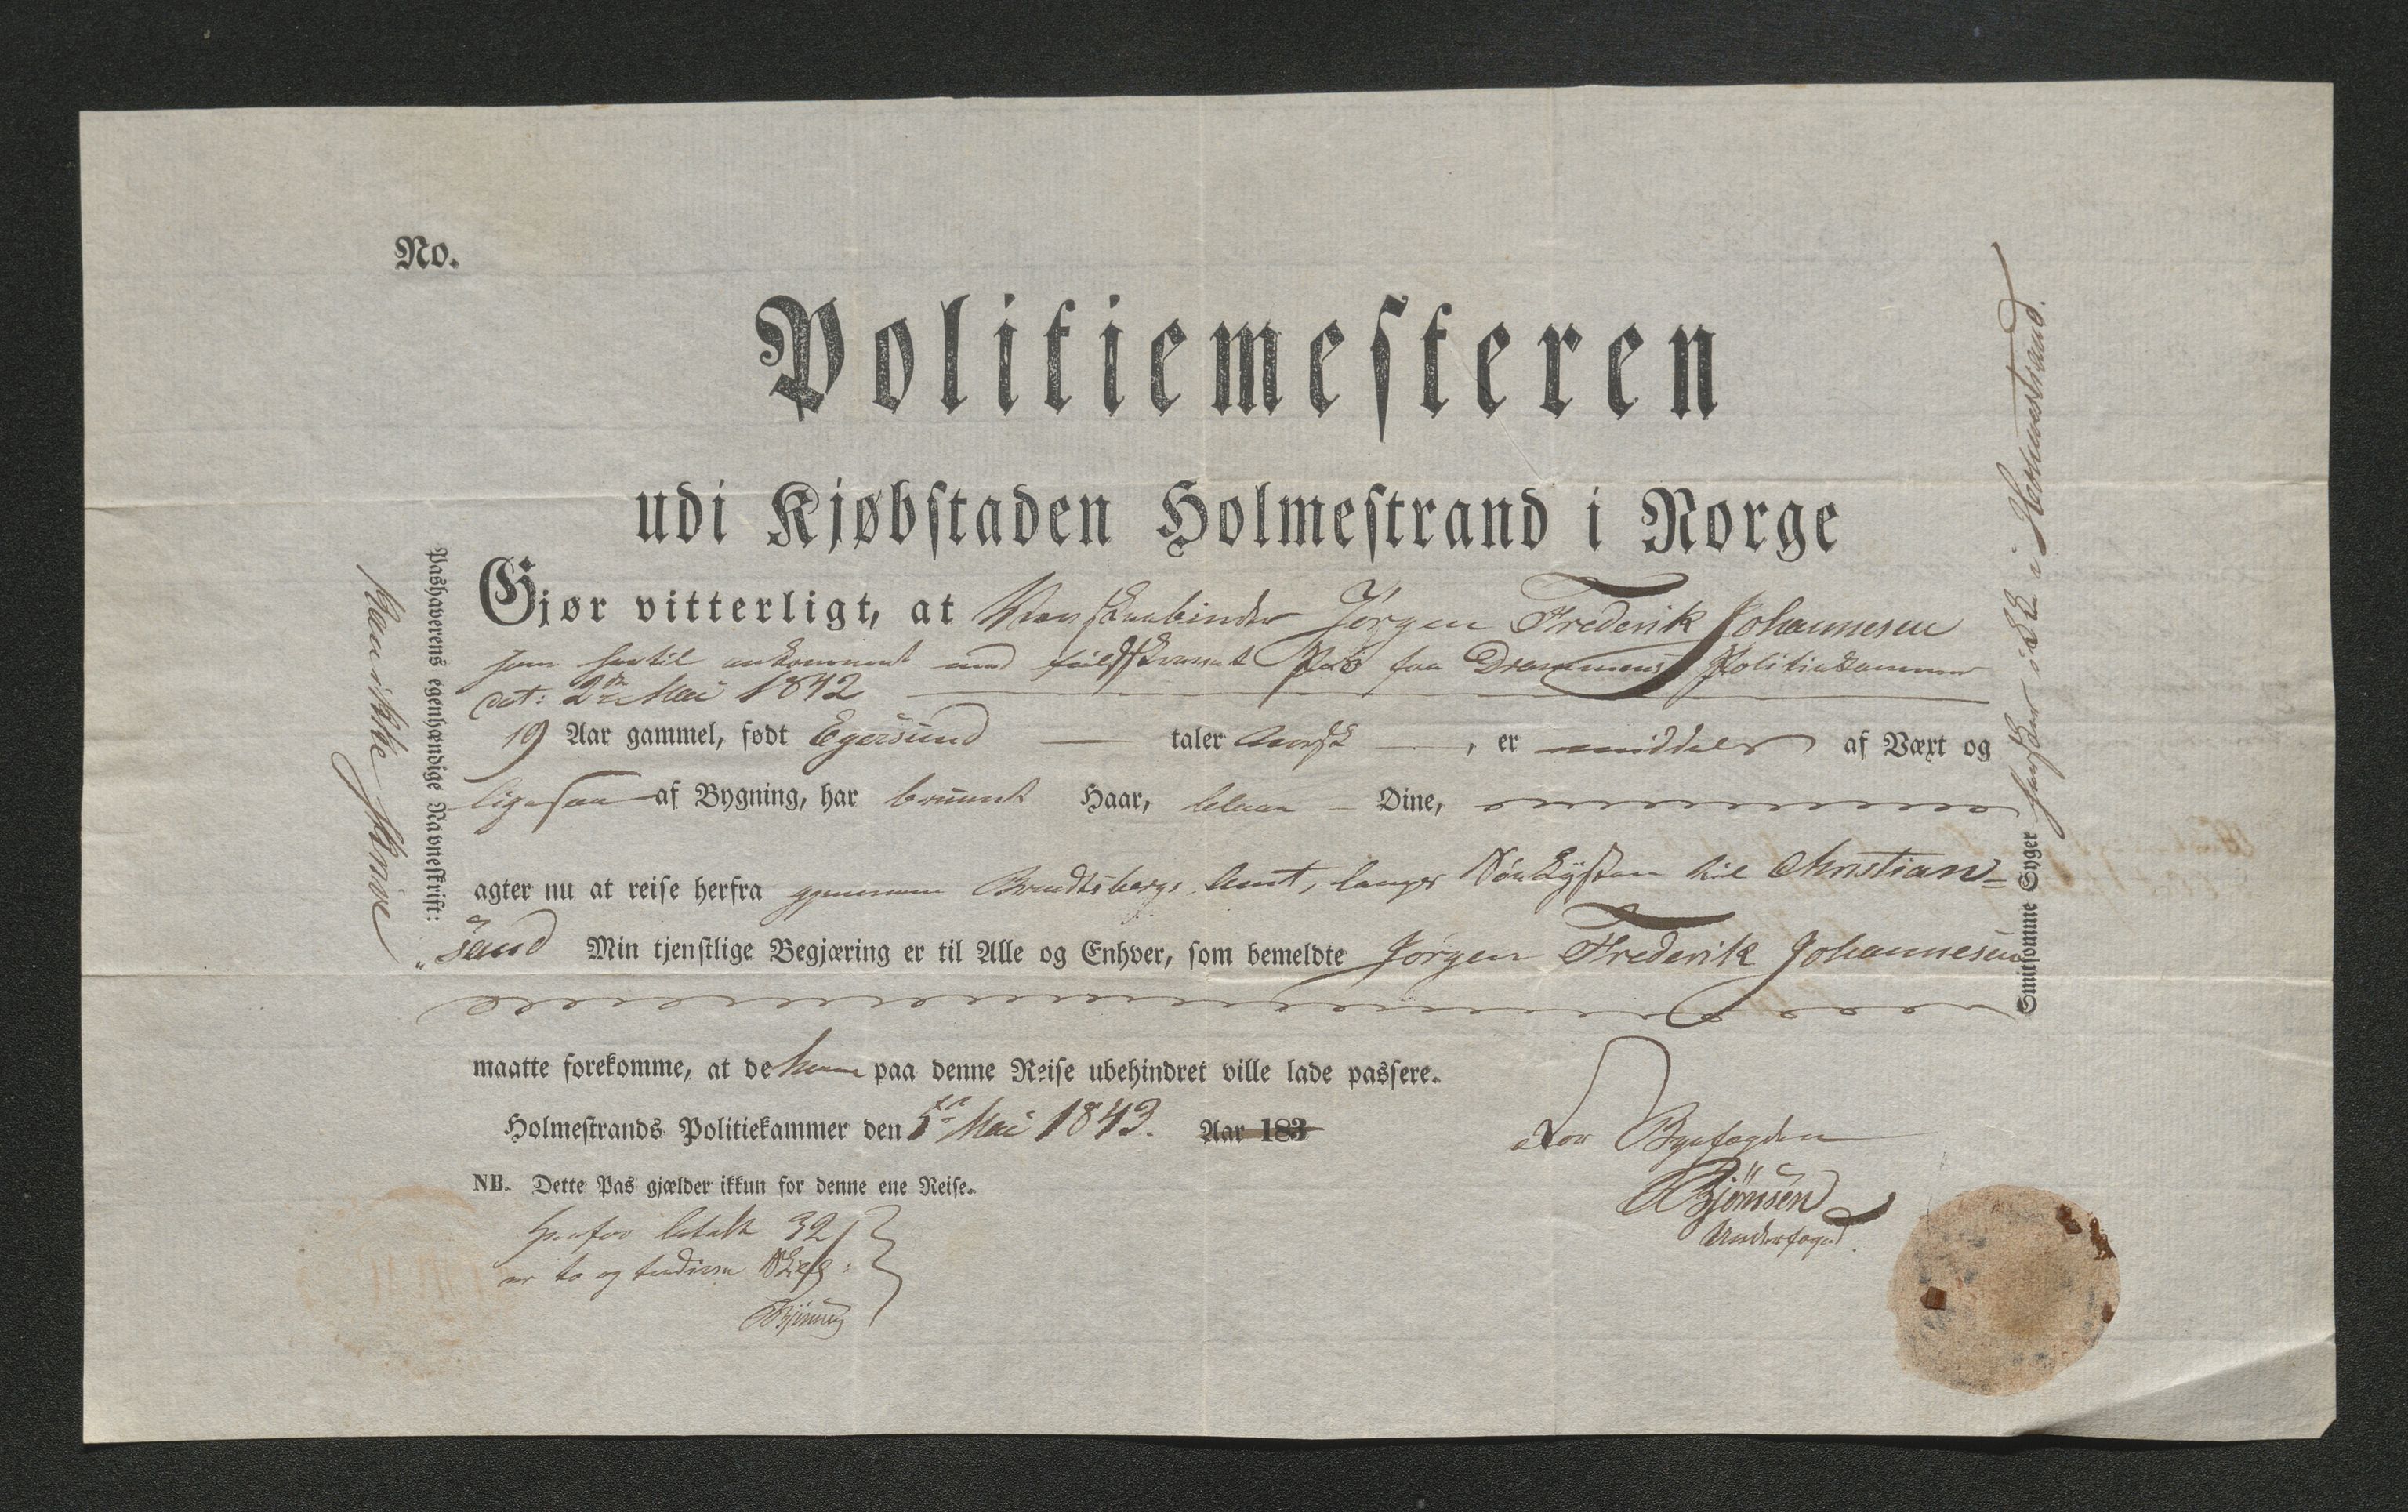 No.
Politiemesteren
udi Kjøbstaden Holmestrand i Norge
Gjør vitterligt, at Jørgen Frederik Johannesen
som hertil ankommet med Pas fra Drammens Politiekammer
dat: 2den Mai 1842
19 Aar gammel, født Egersund taler norsk, er middels af Væxt og
ligesaa af Bygning, har bruunt Haar, blaae Øine,
agter nu at reise herfra gjennem Bradtsbergs Amt, langs Søekysten til Christian=
„sand Min tjenstlige Begjæring er til Alle og Enhver, som bemeldte Jørgen Frederik Johannesen
maatte forekomme, at de ham paa denne Reise ubehindret ville lade passere.
Holmestrands Politiekammer den 5te Mai 1843. Aar 183
NB. Dette Pas gjælder ikkun for denne ene Reise.
Herfor betalt 32
er to og tredive Skill:
For Byefogden
Bjønsen
Underfoged.
Pashaverens egenhændige Navneskrift:
kan ikke skrive
Smitsomme Syger hersker ikke i Holmestrand.